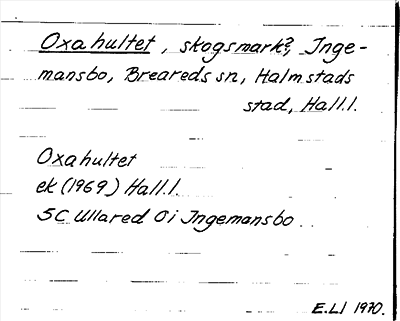 Oxahultet, skogsmark?, Inge-
mansbo, Breareds sn, Halmstads
stad, Hall.l.
Oxahultet
ek (1969) Hall.l.
5C Ullared Oi Ingemansbo
E.Ll 1970.